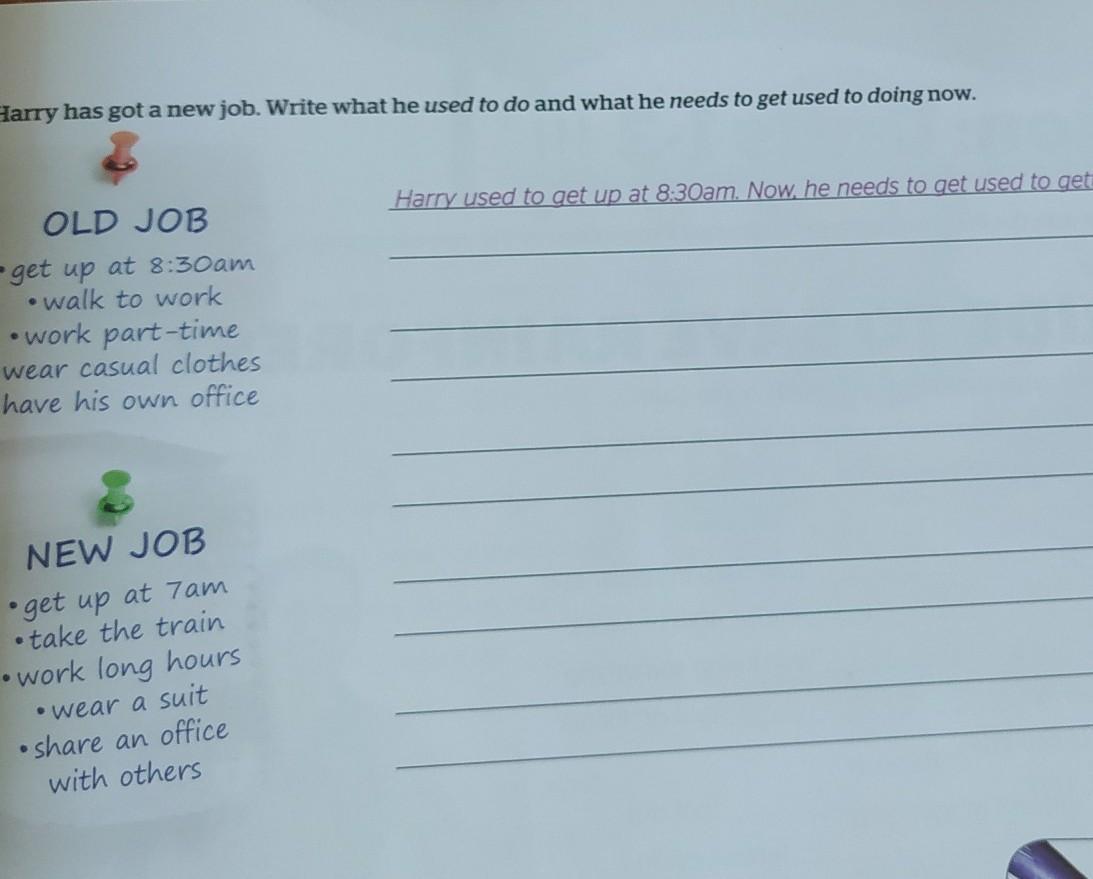 Harry has got a new job. Write what he used to do and what he needs to get used to doing now.
Harry used to get up at 8:30am. Now, he needs to get used to get
OLD JOB
•get up at 8:30am
•walk to work
•work part-time
wear casual clothes
have his own office
NEW JOB
•get up at 7am
•take the train
•work long hours
•wear a suit
•share an office
with others